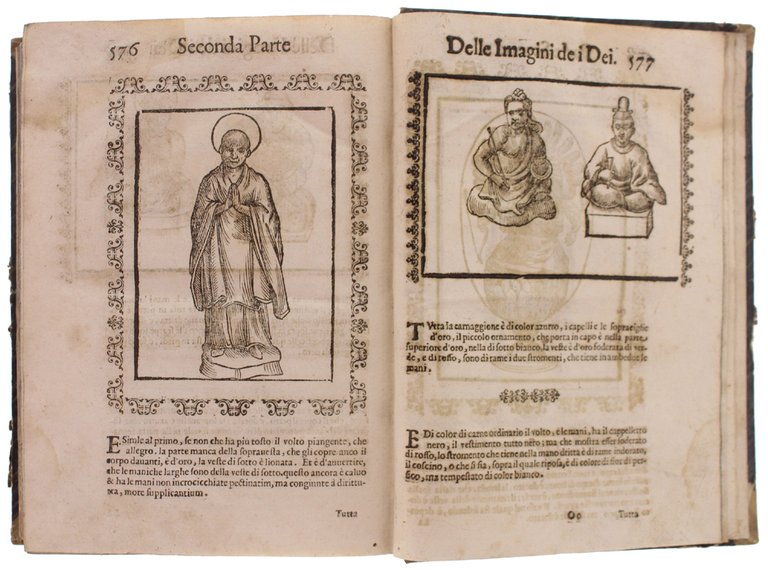 576 Seconda Parte
E Simile al primo, se non che ha piu tosto il volto piangente, che
allegro. la parte manca della sopravesta, che gli copre anco il
corpo dauanti, è d'oro, la veste di sotto è lionata. Et è d'auuertire,
che le maniche larghe sono della veste di sotto. questo ancora è caluo
& ha le mani non incrocicchiate pectinatim, ma congiunte à dirittu-
ra, more supplicantium.
Tutta
Delle Imagini de i Dei. 577
TVtta la carnaggione è di color azurro, i capelli e le sopraciglie
d'oro, il piccolo ornamento, che porta in capo è nella parte
superiore d'oro, nella di sotto bianco, la veste è d'oro foderata di ver-
de, e di rosso, sono di rame i due stromenti, che tiene in ambedue le
mani.
E Di color di carne ordinario il volto, e le mani, ha il cappelletto
nero, il vestimento tutto nero; ma che mostra esser foderato
di rosso, lo stromento che tiene nella mano dritta è di rame indorato,
il coscino, o che si sia, sopra il quale riposa, è di colore di fior di per-
sico, ma tempestato di color bianco.
Oo Tutta